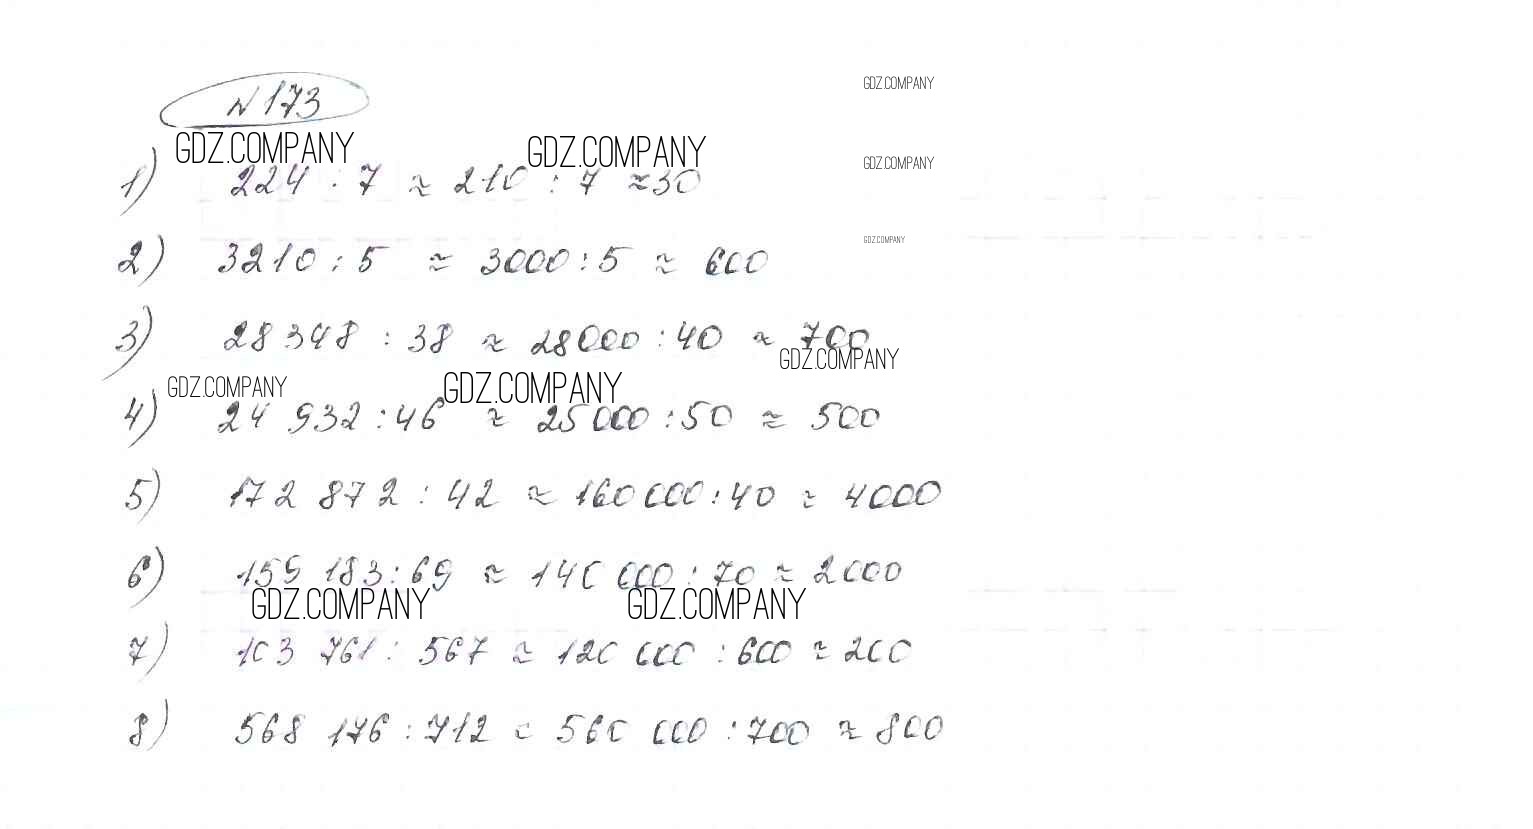 № 173
GDZ.COMPANY
GDZ.COMPANY GDZ.COMPANY
1) 224 : 7 ≈ 210 : 7 ≈ 30
GDZ.COMPANY
GDZ.COMPANY
2) 3210 : 5 ≈ 3000 : 5 ≈ 600
3) 28 348 : 38 ≈ 28000 : 40 ≈ 700
GDZ.COMPANY
GDZ.COMPANY GDZ.COMPANY
4) 24 932 : 46 ≈ 25000 : 50 ≈ 500
5) 172 872 : 42 ≈ 160 000 : 40 ≈ 4000
6) 159 183 : 69 ≈ 140 000 : 70 ≈ 2000
GDZ.COMPANY GDZ.COMPANY
7) 103 761 : 567 ≈ 120 000 : 600 ≈ 200
8) 568 176 : 712 ≈ 560 000 : 700 ≈ 800